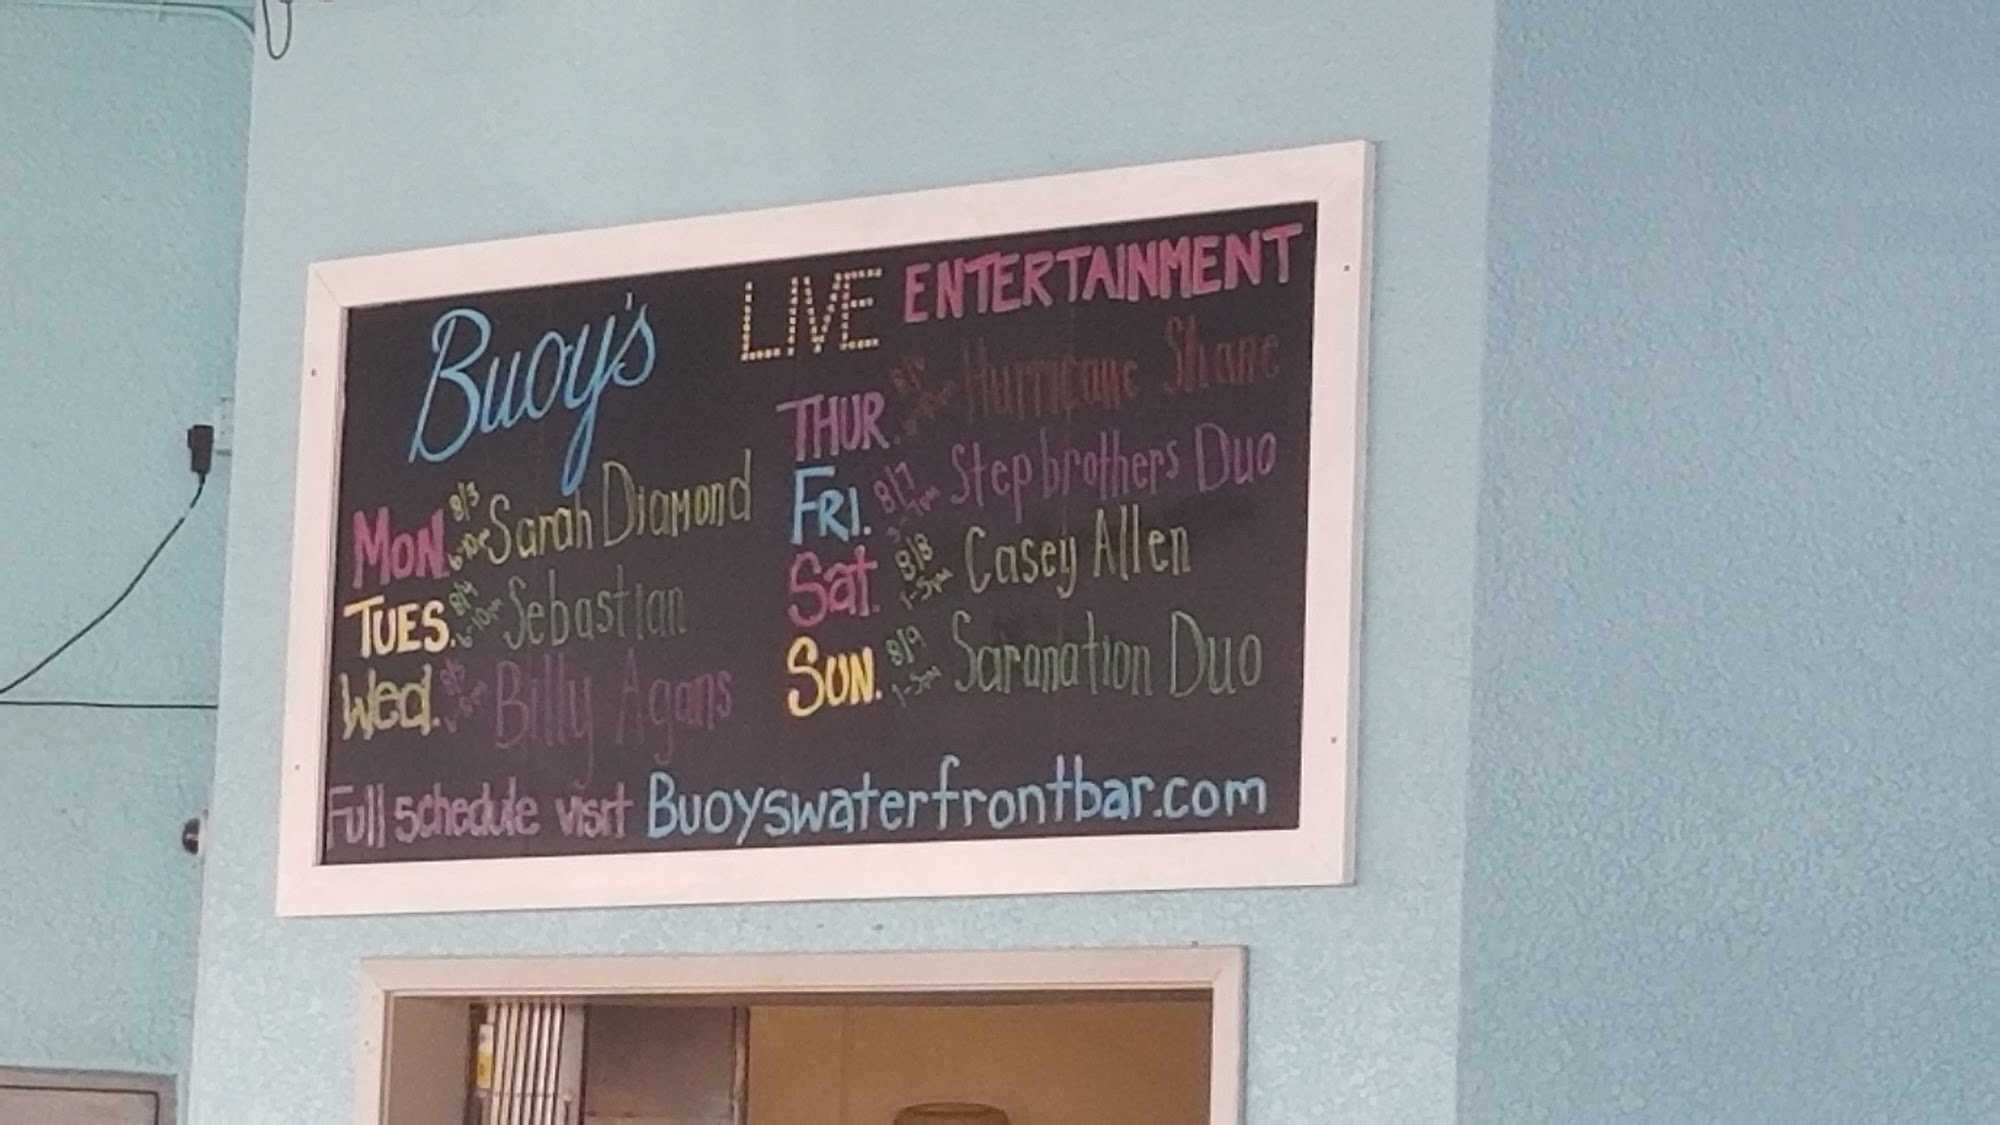 Buoy's LIVE ENTERTAINMENT
MON. 8/3 6-10pm Sarah Diamond
TUES. 8/4 6-10pm Sebastian
Wed. 8/5 Billy Agans
THUR. Hurricane Shane
FRI. 8/7 Stepbrothers Duo
Sat. 8/8 1-5pm Casey Allen
SUN. 8/9 1-5pm Saronation Duo
Full schedule visit Buoyswaterfrontbar.com